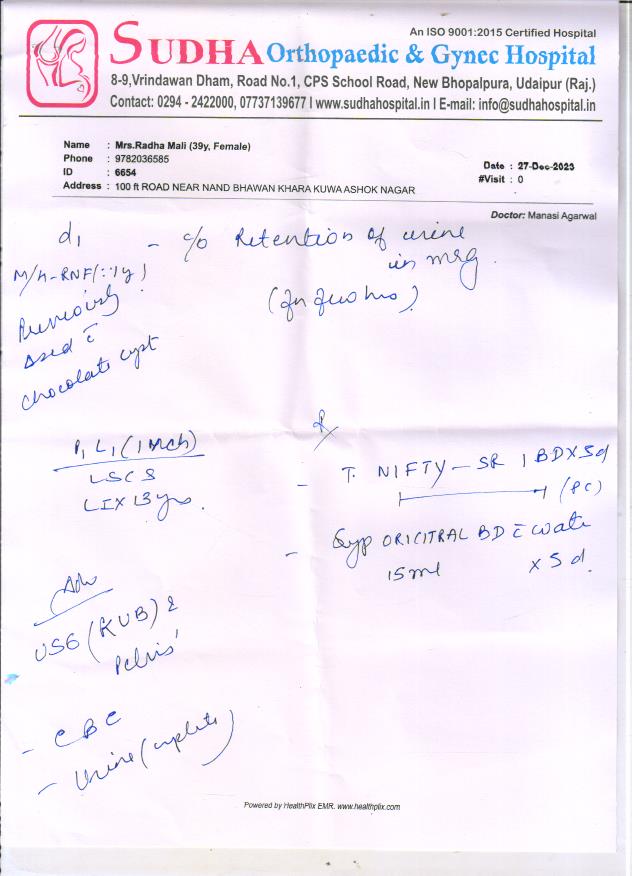 An ISO 9001:2015 Certified Hospital
SUDHA Orthopaedic & Gynec Hospital
8-9,Vrindawan Dham, Road No.1, CPS School Road, New Bhopalpura, Udaipur (Raj.)
Contact: 0294 - 2422000, 07737139677 I www.sudhahospital.in I E-mail: info@sudhahospital.in
Name : Mrs.Radha Mali (39y, Female)
Phone : 9782036585
ID : 6654
Address : 100 ft ROAD NEAR NAND BHAWAN KHARA KUWA ASHOK NAGAR
Date : 27-Dec-2023
#Visit : 0
Doctor: Manasi Agarwal
d1 - c/o Retention of urine
in mrg.
M/H-RNF
Previously
chocolate cyst
P1 L1 (1 Mch)
LSCS
13 yrs.
Rx
- T. NIFTY-SR 1 BD x 5d
(PC)
- Syp ORICITRAL BD c̄ water
15ml x 5 d.
Adv
USG (KUB) &
Pelvis
- CBC
- Urine (complete)
Powered by HealthPlix EMR. www.healthplix.com